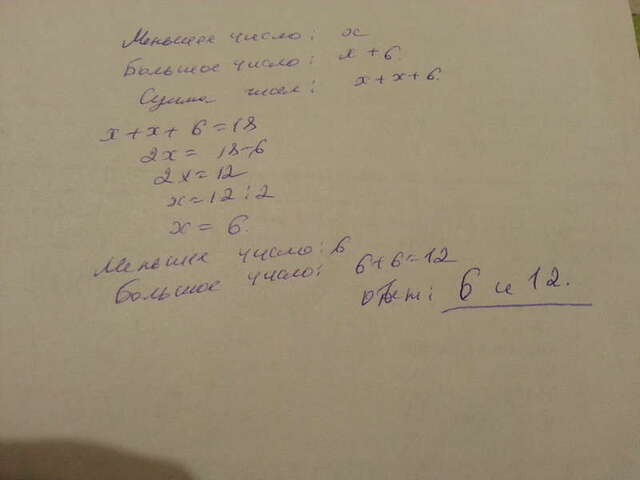 Меньшее число: x
Большое число: x + 6.
Сумма чисел: x + x + 6.
x + x + 6 = 18
2x = 18-6
2x = 12
x = 12 : 2
x = 6.
Меньшее число: 6
Большое число: 6+6=12
Ответ: 6 и 12.